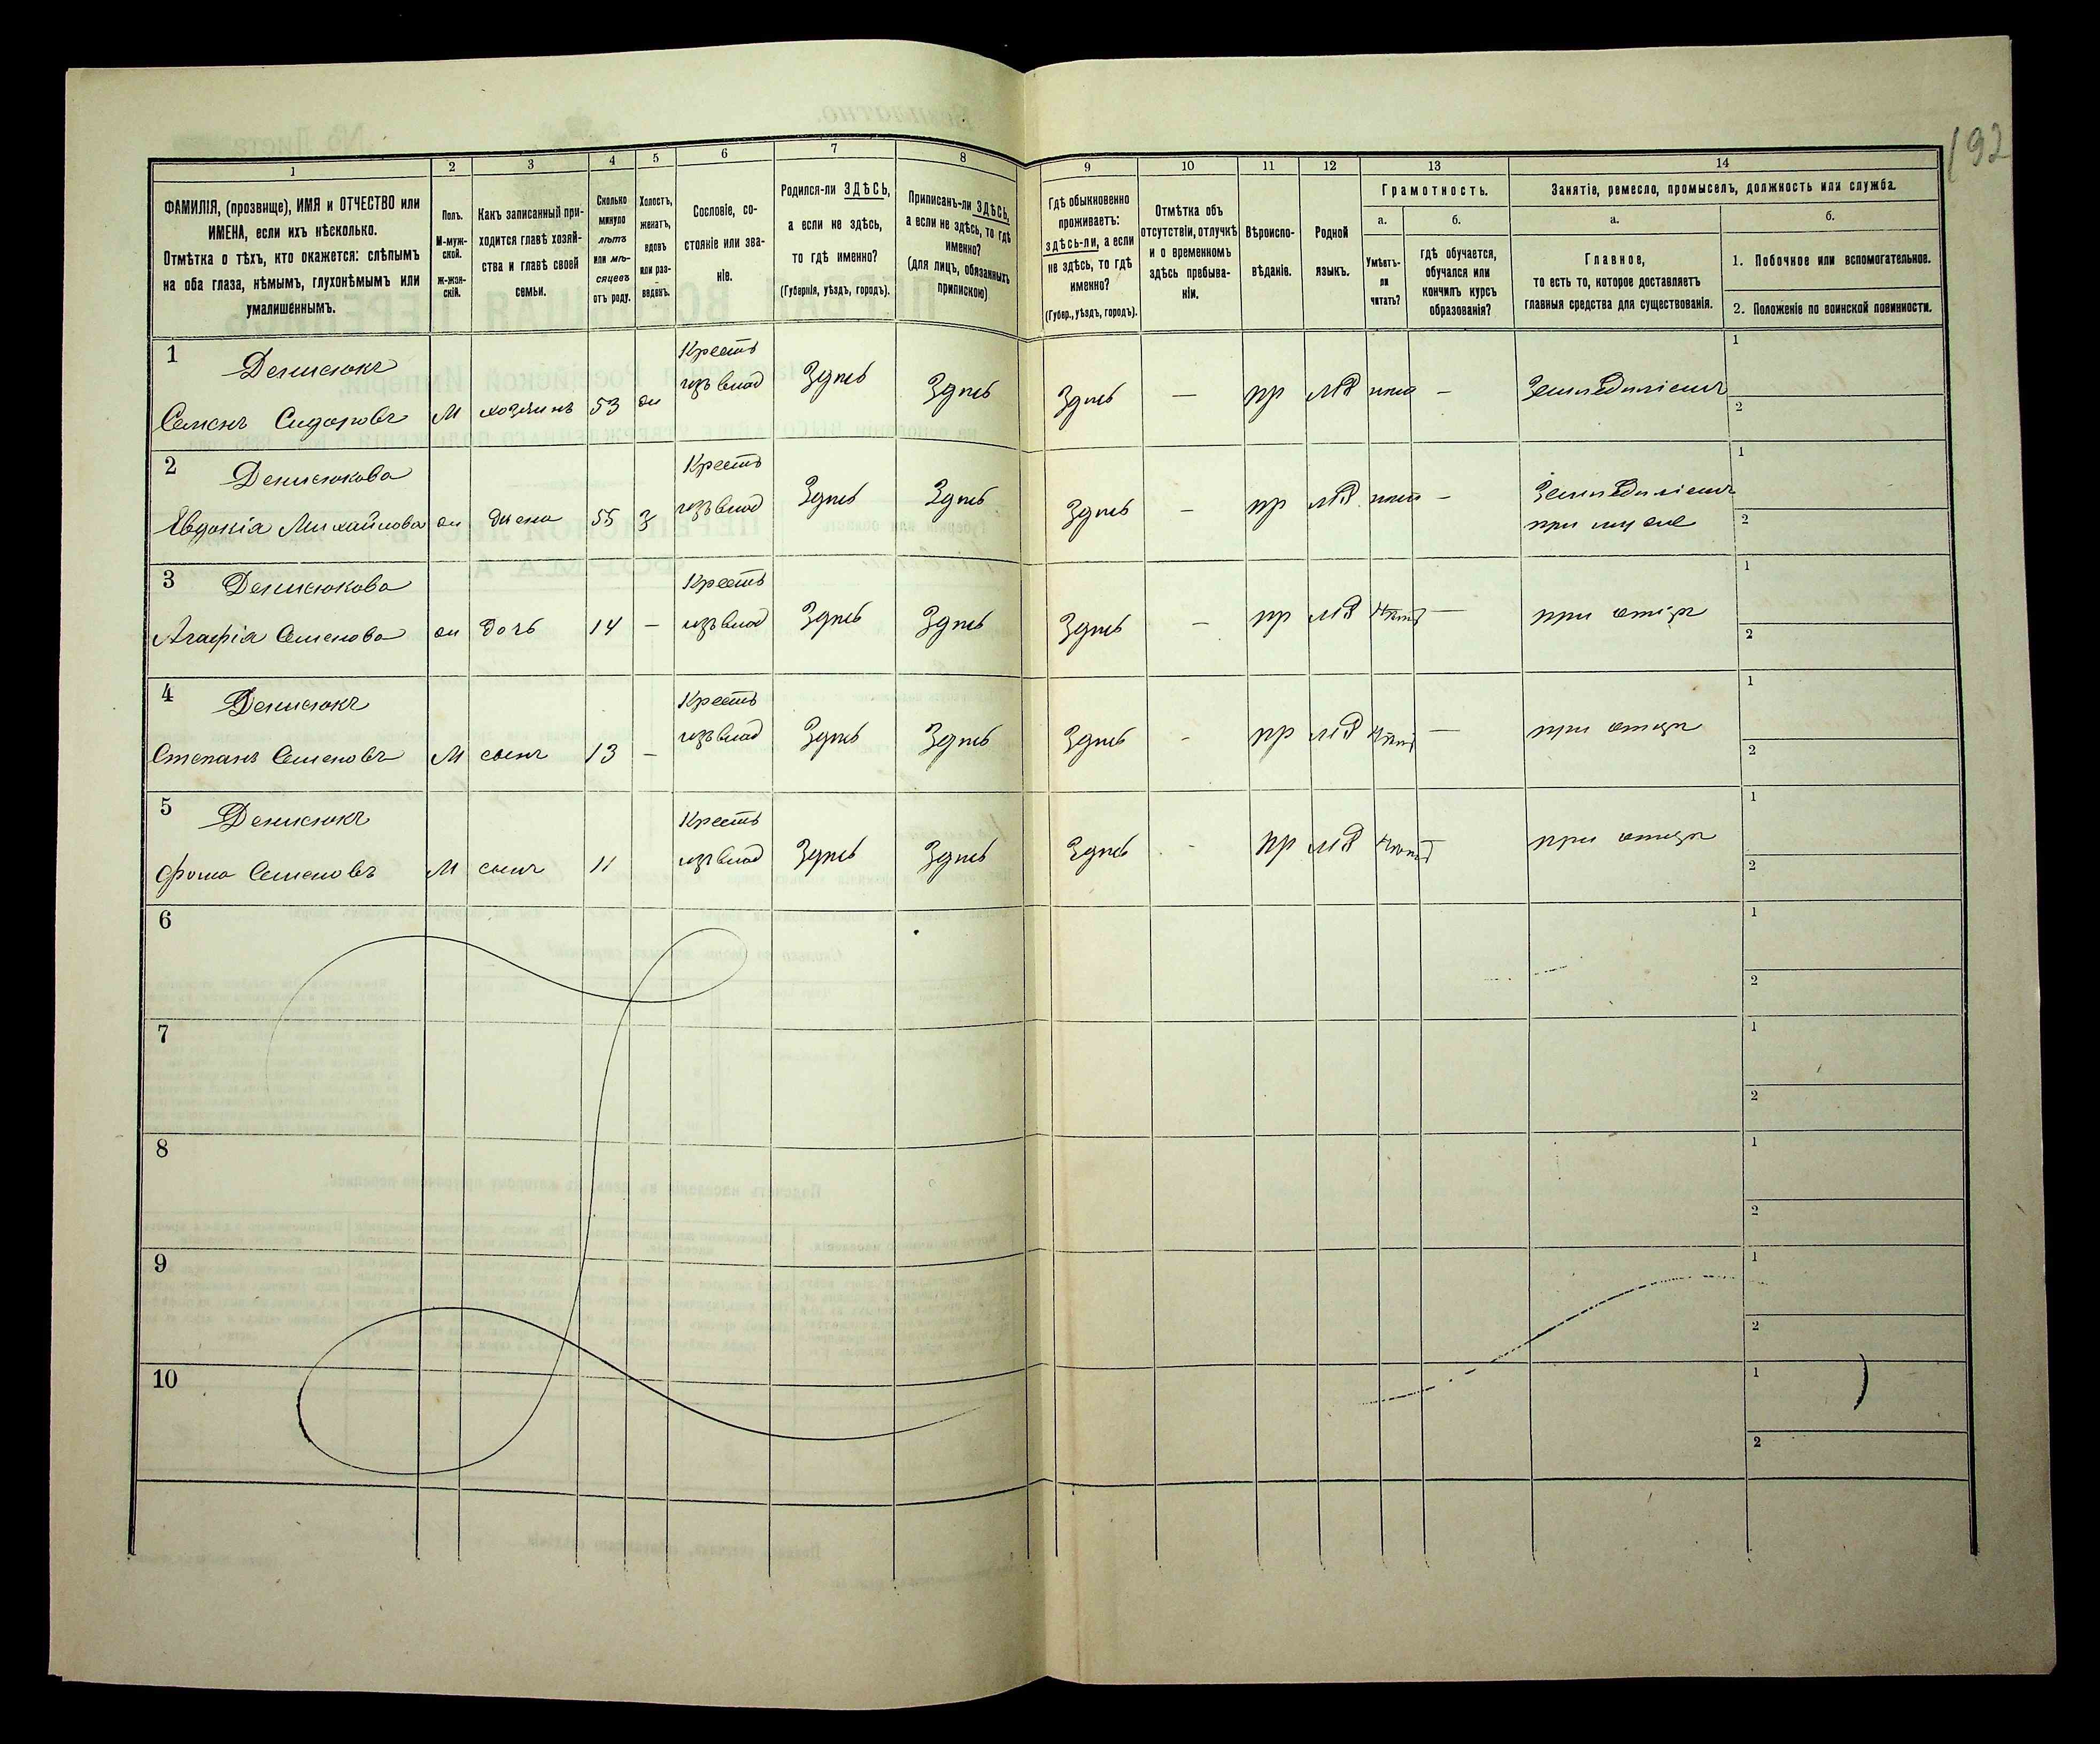 192
1
2
3
4
5
6
7
8
9
10
11
12
13
14
ФАМИЛІЯ, (прозвище), ИМЯ и ОТЧЕСТВО или
ИМЕНА, если ихъ нѣсколько.
Отмѣтка о тѣхъ, кто окажется: слѣпымъ
на оба глаза, нѣмымъ, глухонѣмымъ или
умалишеннымъ.
Полъ.
М-муж-
ской.
Ж-жен-
скій.
Какъ записанный при-
ходится главѣ хозяй-
ства и главѣ своей
семьи.
Сколько
минуло
лѣтъ
или мѣ-
сяцевъ
отъ роду.
Холостъ,
женатъ,
вдовъ
или раз-
веденъ.
Сословіе, со-
стояніе или зва-
ніе.
Родился-ли ЗДѢСЬ,
а если не здѣсь,
то гдѣ именно?
(Губернія, уѣздъ, городъ).
Приписанъ-ли ЗДѢСЬ,
а если не здѣсь, то гдѣ
именно?
(для лицъ, обязанныхъ
припискою)
Гдѣ обыкновенно
проживаетъ:
здѣсь-ли, а если
не здѣсь, то гдѣ
именно?
(Губер., уѣздъ, городъ).
Отмѣтка объ
отсутствіи, отлучкѣ
и о временномъ
здѣсь пребыва-
ніи.
Вѣроиспо-
вѣданіе.
Родной
языкъ.
Грамотность.
а.
б.
Умѣетъ-
ли
читать?
гдѣ обучается,
обучался или
кончилъ курсъ
образованія?
Занятіе, ремесло, промыселъ, должность или служба.
а.
б.
Главное,
то есть то, которое доставляетъ
главныя средства для существованія.
1. Побочное или вспомогательное.
2. Положеніе по воинской повинности.
1
Денисюкъ
Семенъ Сидоровъ М хозяинъ 53 ж
Крест
изъ влад Здѣсь Здѣсь Здѣсь — пр мр нѣт — Земледѣліемъ
1
2
2
Денисюкова
Евдокія Михайлова ж жена 55 з
Крест
изъ влад Здѣсь Здѣсь Здѣсь - пр мр нѣт — Земледѣліемъ
при мужѣ
1
2
3
Денисюкова
Агафія Семенова ж дочь 14 —
Крест
изъ влад Здѣсь Здѣсь Здѣсь - пр мр нѣт — при отцѣ
1
2
4
Денисюкъ
Степанъ Семеновъ М сынъ 13 -
Крест
изъ влад Здѣсь Здѣсь Здѣсь - пр мр нѣт — при отцѣ
1
2
5
Денисюкъ
Фома Семеновъ М сынъ 11
Крест
изъ влад Здѣсь Здѣсь Здѣсь - пр мр нѣт при отцѣ
1
2
6
1
2
7
1
2
8
1
2
9
1
2
10
1
2